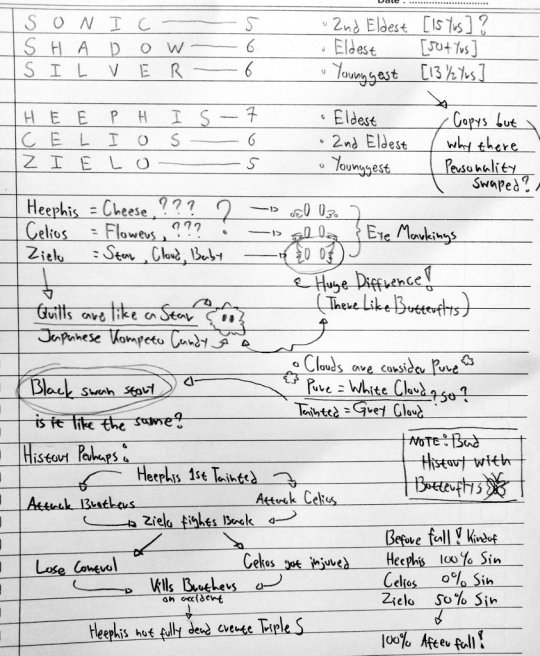 Date :
S O N I C — 5 ◦ 2nd Eldest [15 Yrs] ?
S H A D O W — 6 ◦ Eldest [50+ Yrs]
S I L V E R — 6 ◦ Younggest [13 1/2 Yrs]
H E E P H I S — 7 ◦ Eldest
C E L I O S — 6 ◦ 2nd Eldest
Z I E L O — 5 ◦ Younggest
(Copys but
why there
Personality
swaped?)
Heephis = Cheese, ??? ?
Celios = Flowers, ???
Zielo = Star, Cloud, Baby
Eye Markings
Huge Diffrence!
(There Like Butterflys)
Quills are like a Star
Japannese Kompeto Candy
◦ Clouds are consider Pure
Pure = White Cloud
Tainted = Grey Cloud ? so ?
Black swan story
is it like the same?
NOTE: Bad
History with
Butterflys
History Perhaps:
Heephis 1st Tainted
Attack Brothers Attack Celios
Zielo fights Back
Lose Control Celios got injured
Kills Brothers
on accident
Heephis not fully dead create Triple S
Before fall! Kindof
Heephis 100% Sin
Celios 0% Sin
Zielo 50% Sin
100% After fall!